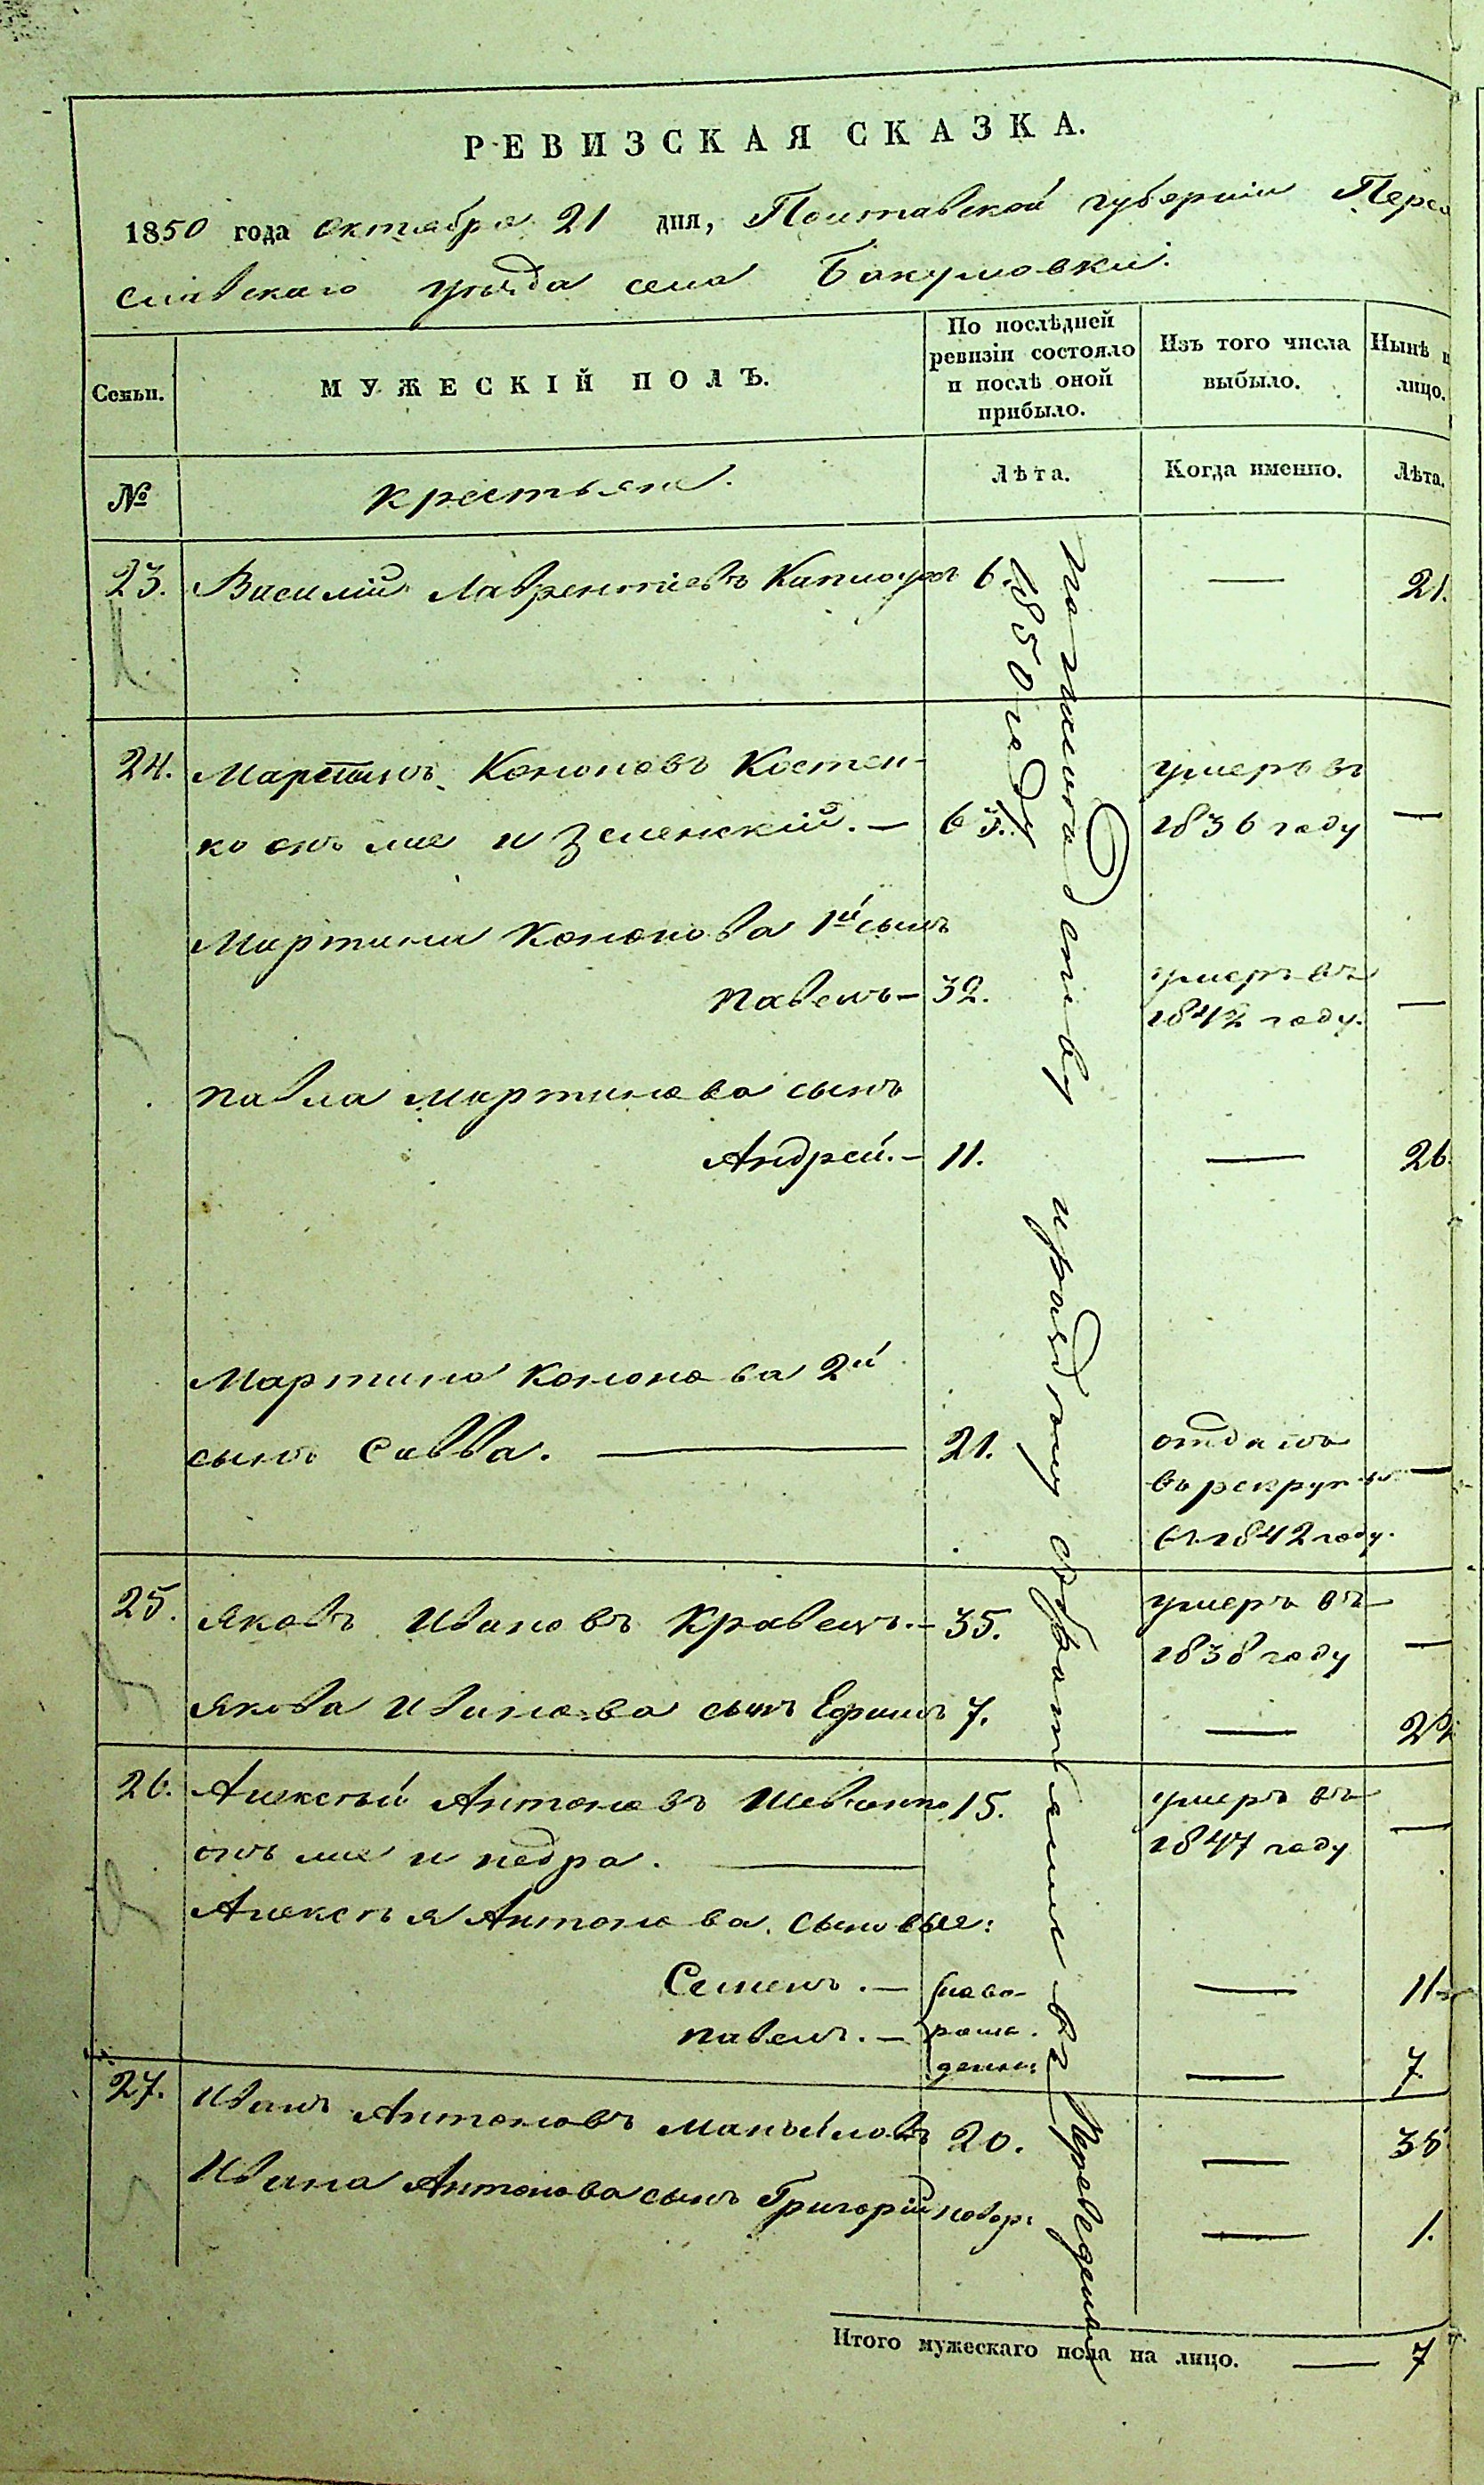 РЕВИЗСКАЯ СКАЗКА.
1850 года октября 21 дня, Полтавской губернии Перея
славскаго уѣзда села Бакумовки.
Семьи.
МУЖЕСКІЙ ПОЛЪ.
По послѣдней
ревизіи состояло
и послѣ оной
прибыло.
Изъ того числа
выбыло.
Нынѣ н
лицо.
№
крестьяне.
Лѣта.
Когда именно.
Лѣта.
23. Василій Лаврентіевъ 6. — 21.
24. Мартинъ Кононовъ Костен-
ко онъ же и Зеленскій. — 65. умеръ въ
1836 году —
Мартина Кононова 1й сынъ
Павелъ — 32. умеръ въ
1842 году. —
Павла Мартинова сынъ
Андрей. — 11. — 26.
Мартина Кононова 2й
сынъ Савва. — 21. отданъ
въ рекруты —
въ 1842 году.
25. Яковъ Ивановъ Кравецъ. — 35. умеръ въ
1838 году —
Якова Иванова сынъ Ефимъ 7. — 22.
26. Алексѣй Антоновъ Шевченко 15. умеръ въ
онъ же и Недра. — 1847 году —
Алексѣя Антонова сыновья:
Семенъ. — ново- — 11.
Павелъ. — рож-
денны — 7.
27. Иванъ Антоновъ 20. — 35
Ивана Антонова сынъ Григорій новор: — 1.
Переведены въ
по наслѣдству и раздѣлу съ братьями въ
1850 году
Итого мужескаго пола на лицо. — 7